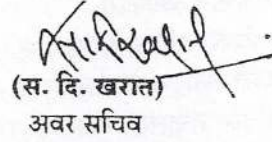 (स. दि. खरात)
अवर सचिव